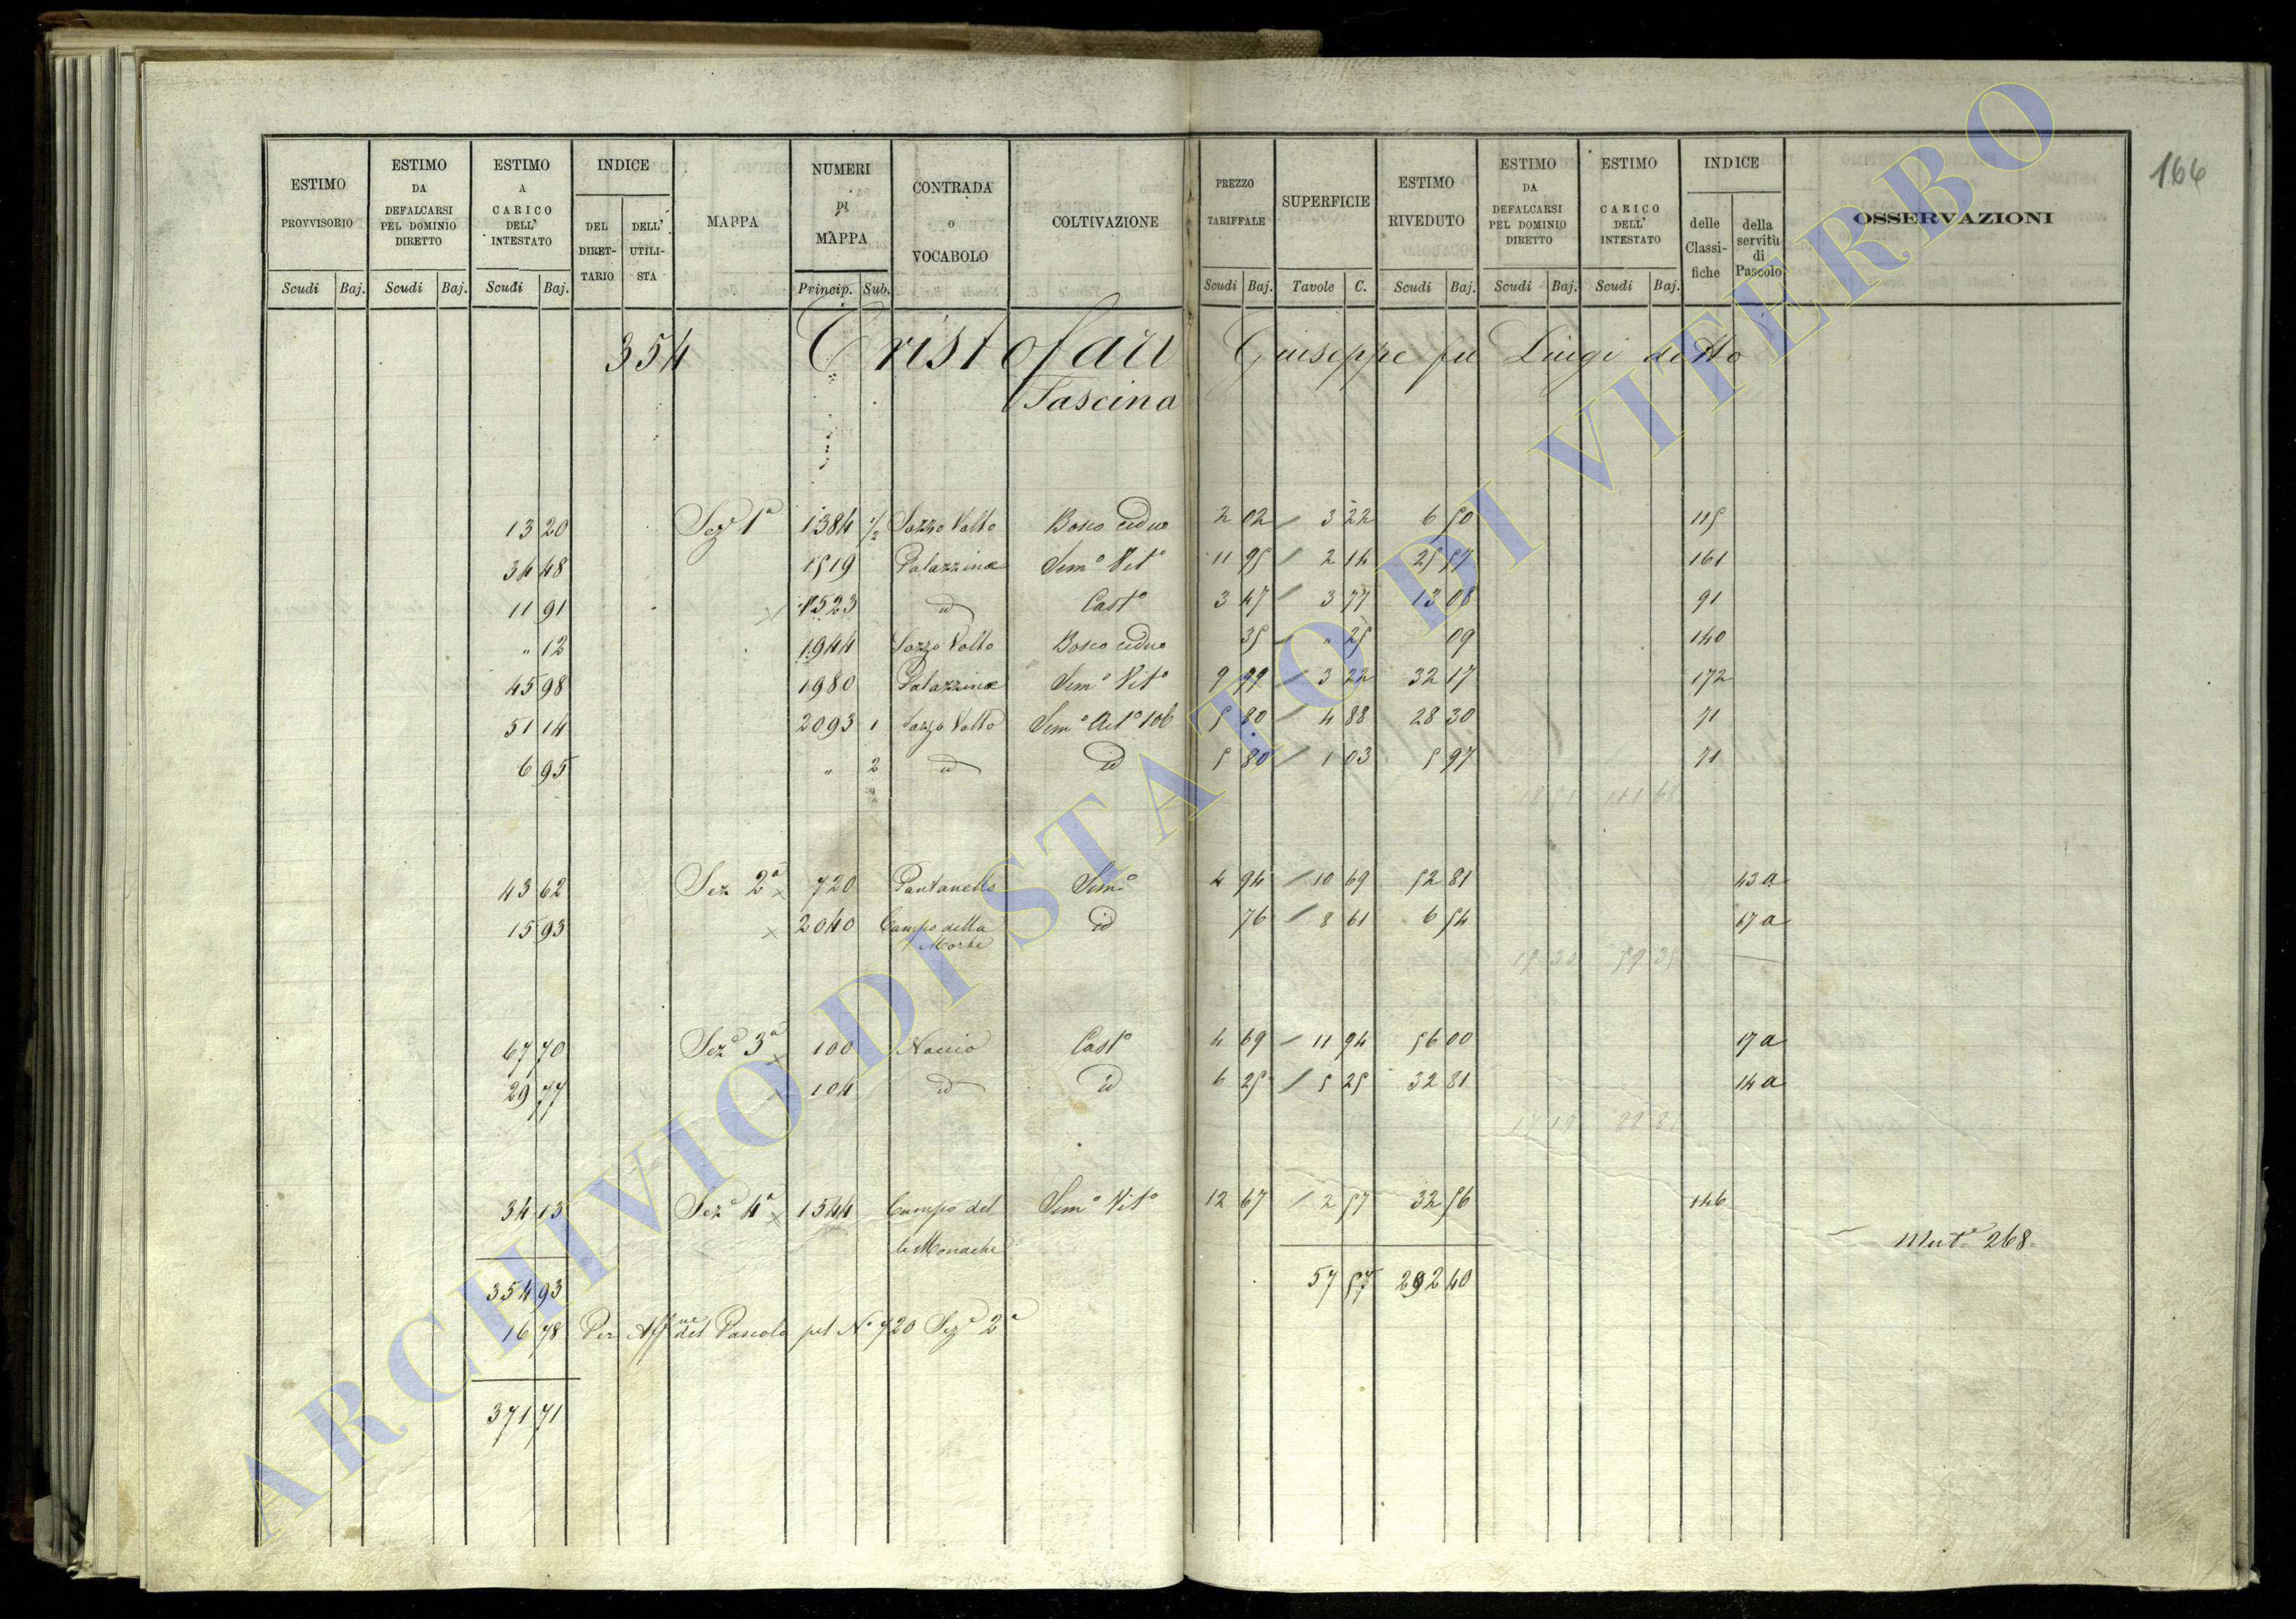 166
ESTIMO PROVVISORIO | ESTIMO DA DEFALCARSI PEL DOMINIO DIRETTO | ESTIMO A CARICO DELL' INTESTATO | INDICE DEL DIRET-TARIO | DELL' UTILI-STA | MAPPA | NUMERI DI MAPPA | CONTRADA O VOCABOLO | COLTIVAZIONE | PREZZO TARIFFALE | SUPERFICIE | ESTIMO RIVEDUTO | ESTIMO DA DEFALCARSI PEL DOMINIO DIRETTO | ESTIMO A CARICO DELL' INTESTATO | INDICE delle Classi-fiche | della servitù di Pascolo | OSSERVAZIONI
Scudi Baj. | Scudi Baj. | Scudi Baj. | Princip. Sub. | Scudi Baj. | Tavole C. | Scudi Baj. | Scudi Baj. | Scudi Baj.
354 Cristofari Giuseppe fu Luigi detto
Fascina
13 20 Sez 1a 1384 1/2 Sozzo Volto Bosco ceduo 2 02 3 22 6 50 115
34 48 1519 Palazzina Semo Vito 11 95 2 14 25 57 161
11 91 x 1523 id Casto 3 47 3 77 13 08 91
" 12 1944 Sozzo Volto Bosco ceduo 35 " 25 09 140
45 98 1980 Palazzina Semo Vito 9 99 3 22 32 17 172
51 14 2093 1 Sozzo Volto Semo 106 5 80 4 88 28 30 71
6 95 " 2 id id 5 80 1 03 5 97 71
43 62 Sez 2a x 720 Pantanello Semo 4 94 10 69 52 81 43 a
15 93 x 2040 Campo della Morte id 76 8 61 6 54 17 a
15 30 59 35
67 70 Seze 3a x 100 Naccio Casto 4 69 11 94 56 00 17 a
29 77 x 104 id id 6 25 5 25 32 81 14 a
34 13 Seze 4a x 1544 Campo del le Monache Semo Vito 12 67 2 57 32 56 146
Mute 268
354 93 57 57 292 40
16 78 Per Affne del Pascolo pel No 720 Seze 2a
371 71
ARCHIVIO DI STATO DI VITERBO